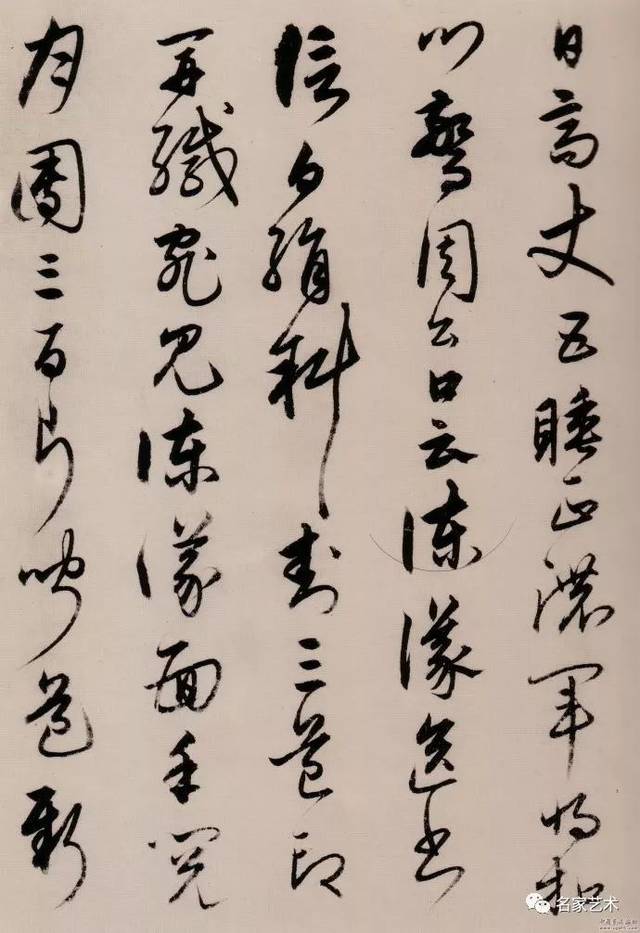 日高丈五睡正濃軍将扣
門驚周公口云諫議送書
信白絹斜封三道印
開緘宛見諫議面手閱
月團三百片聞道新
名家艺术